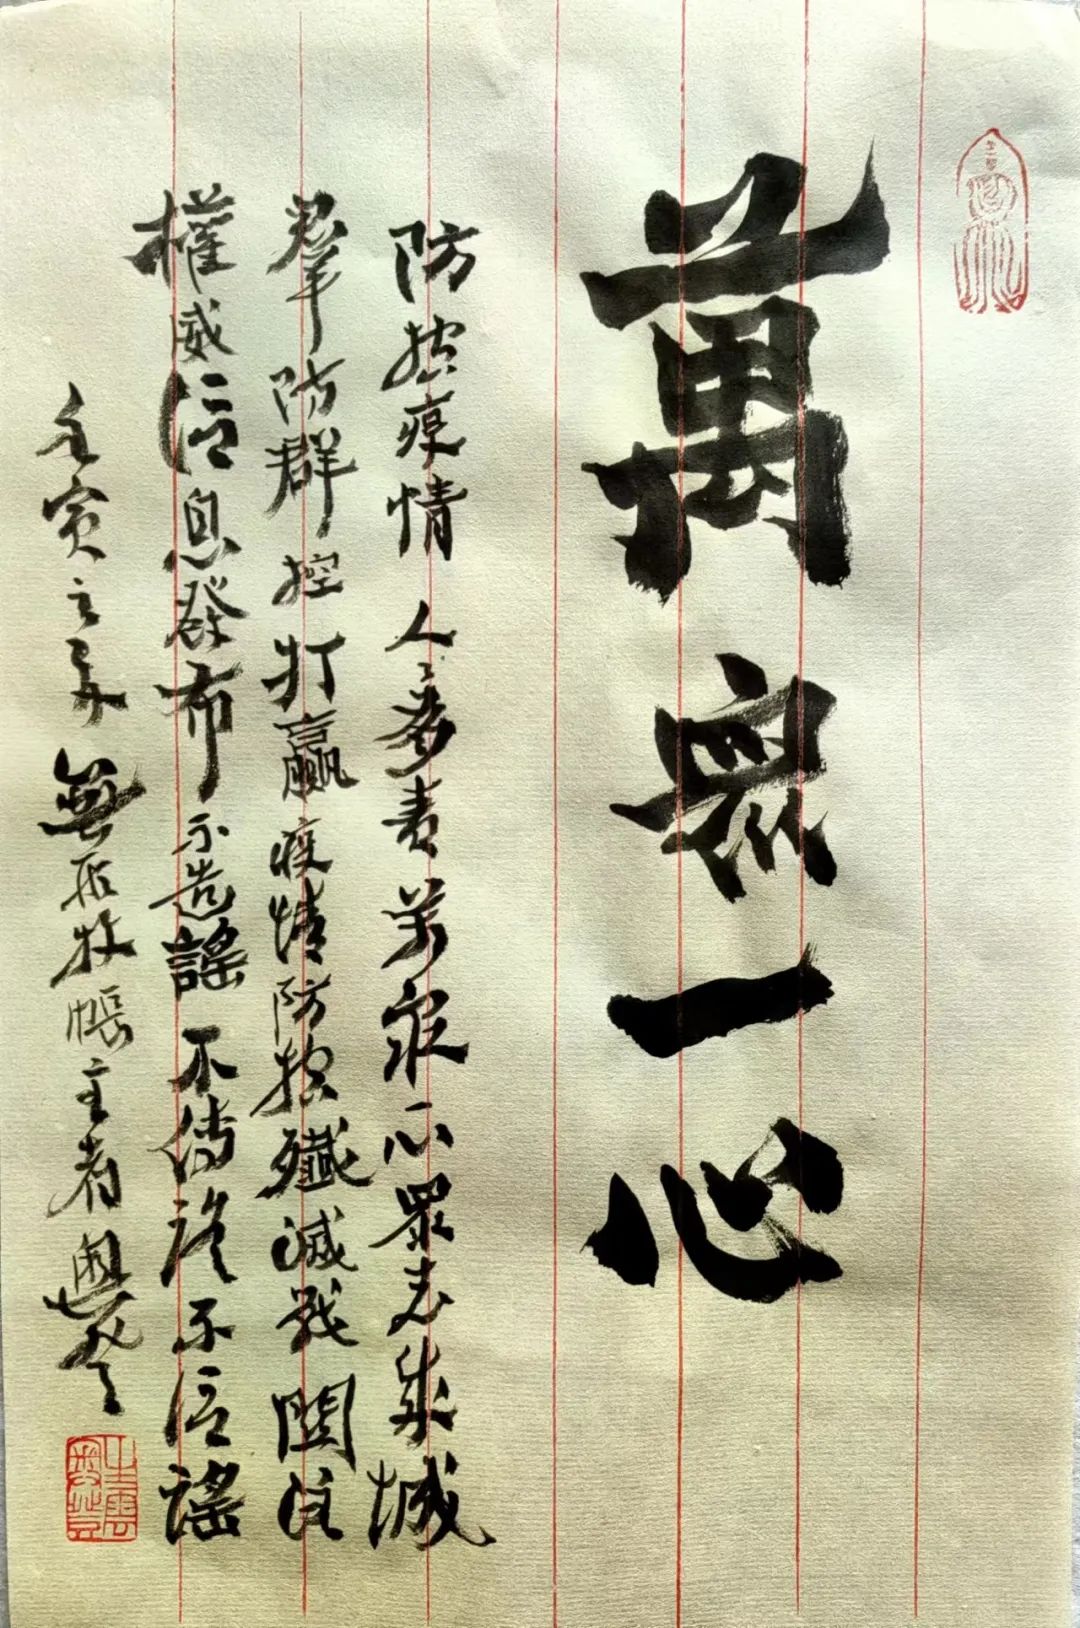 萬眾一心
防控疫情人人有責万家一心眾志成城
羣防群控打贏疫情防控殲滅戰関注
權威信息發布不造謠不傳謠不信謠
壬寅之